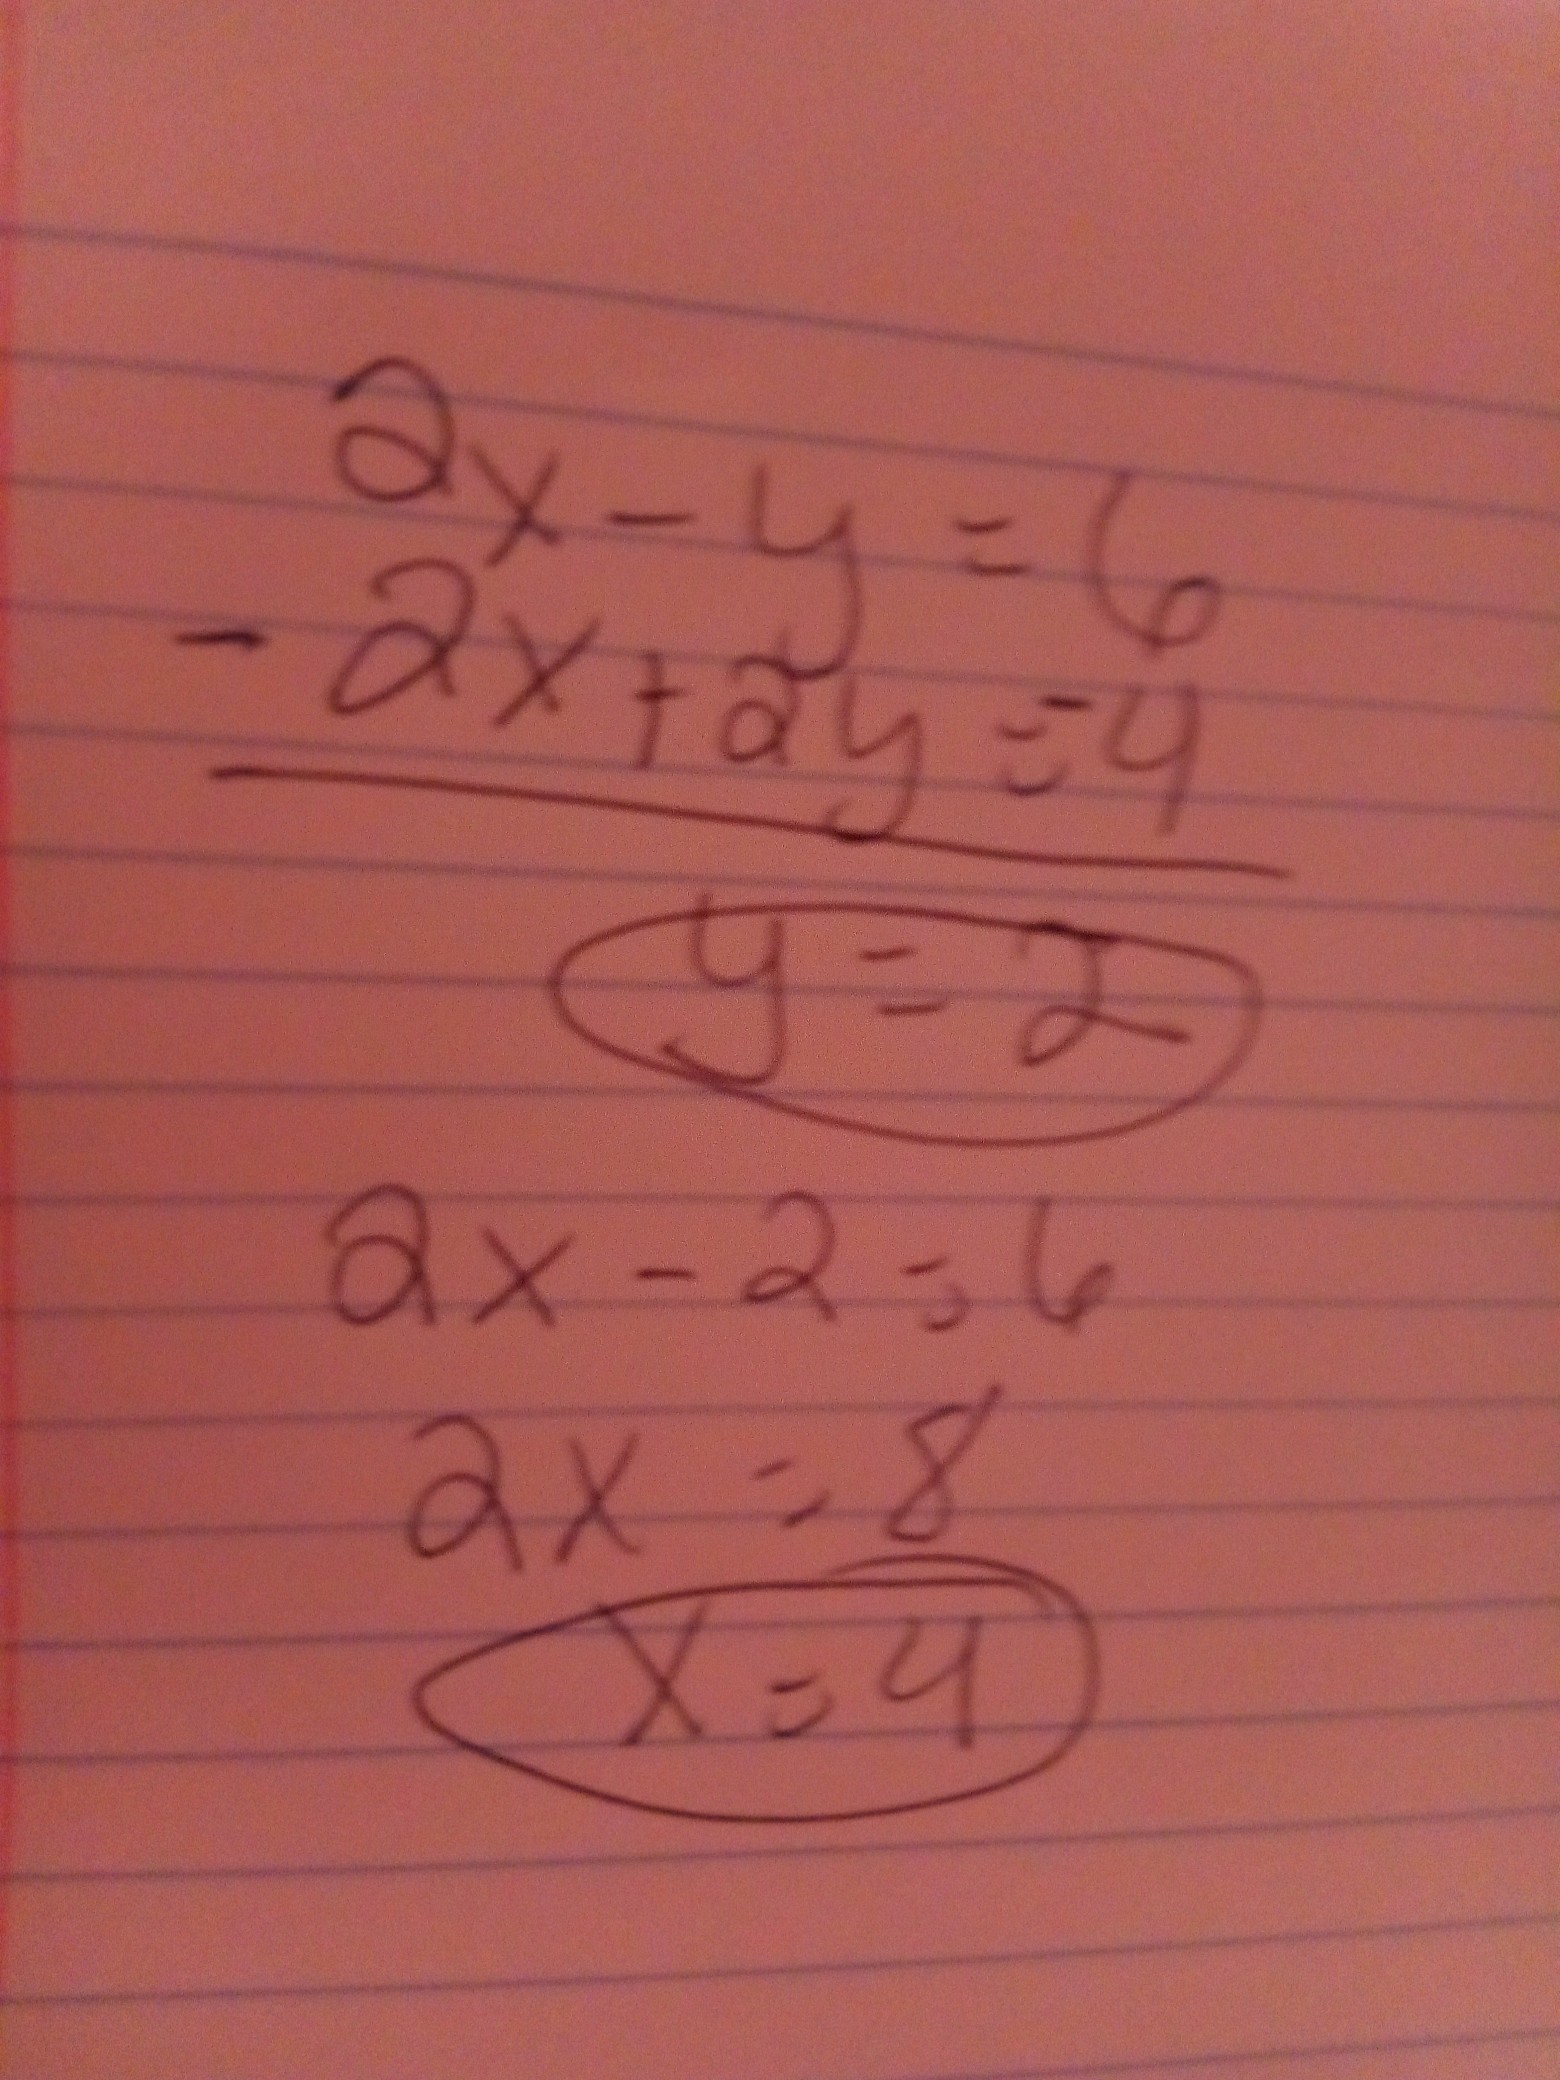 2x - y = 6
- 2x + 2y = -4
y = 2
2x - 2 = 6
2x = 8
x = 4